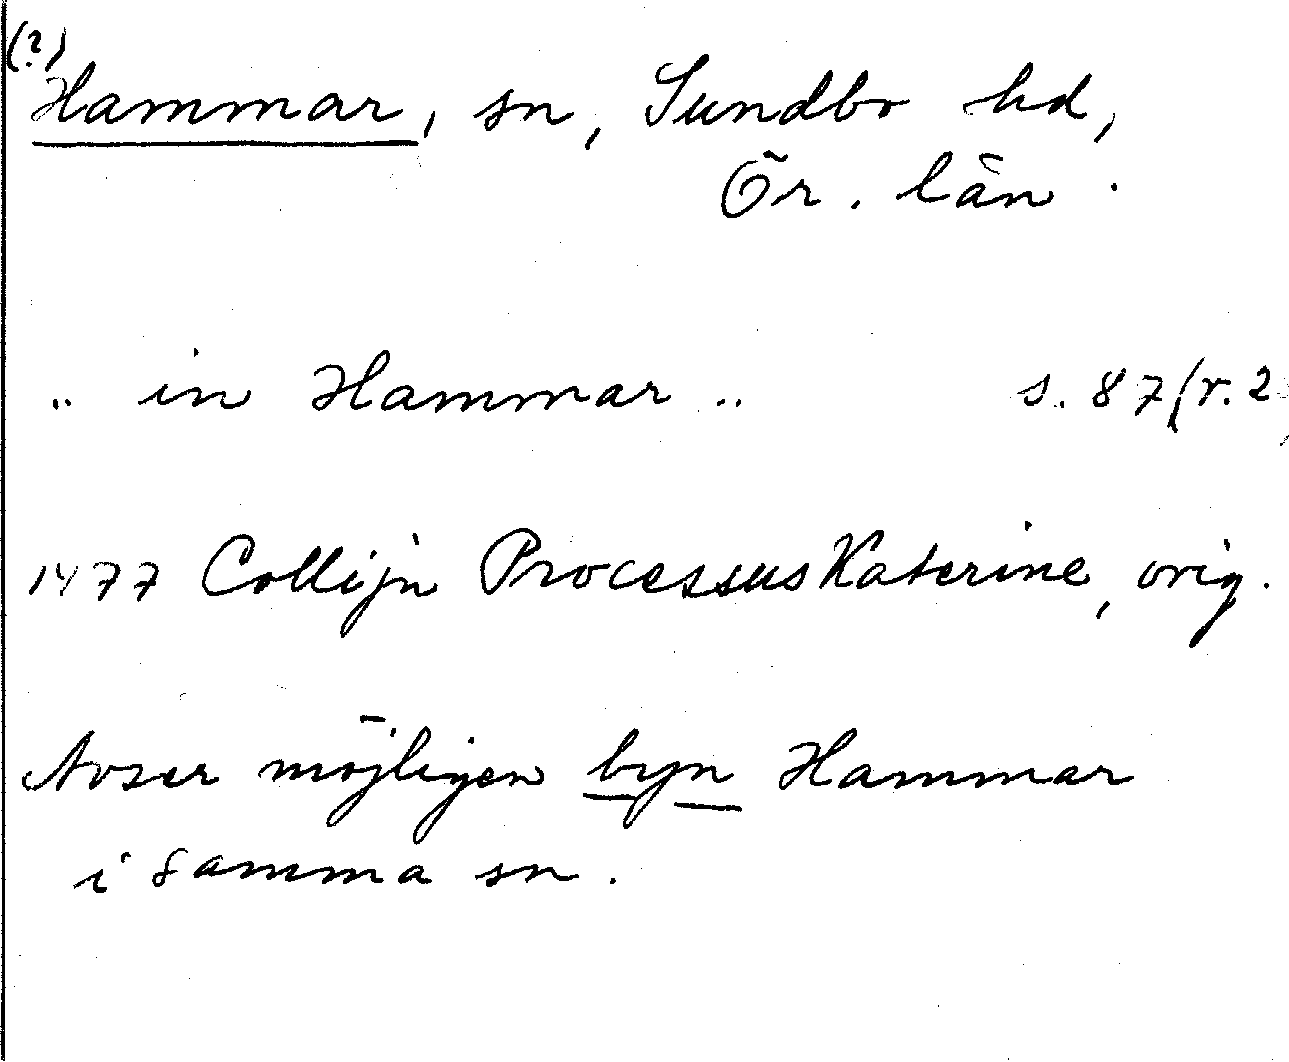 (?)
Hammar, sn, Sundbo hd,
Ör. län.
.. in Hammar .. s. 87 (r. 2
1477 Collijn Processus Katerine, orig.
Avser möjligen byn Hammar
i samma sn.